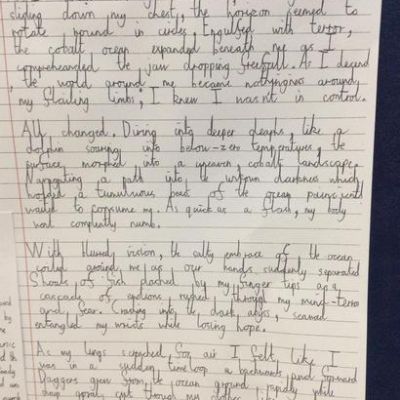 sliding down my chest, the horizon seemed to
rotate around in circles. Engulfed with terror,
the cobalt ocean expanded beneath me as I
comprehended the jaw dropping freefall. As I decend
the world around me became nothingness around
my flailing limbs; I knew I wasn't in control.
All changed. Diving into deeper depths, like a
dolphin soaring into below-zero temperatures, the
surface morphed into a cobalt landscape.
Navigating a path into the unknown darkness which
a tumultuous of the ocean
waited to consume me. As quick as a flash, my body
went completely numb.
With blurred vision, the salty embrace of the ocean
coiled around me as our hands suddenly separated
Shoals of fish flashed by my finger tips as a
cascade of emotions rushed through my mind-terror
and fear. Crashing into the dark abyss, seaweed
entangled my wrists while losing hope.
As my lungs screeched for air I felt like I
was in a sudden time loop a backwards and forward
Daggers grew from the ocean ground, rapidly while
sharp coral cut through my clothes like